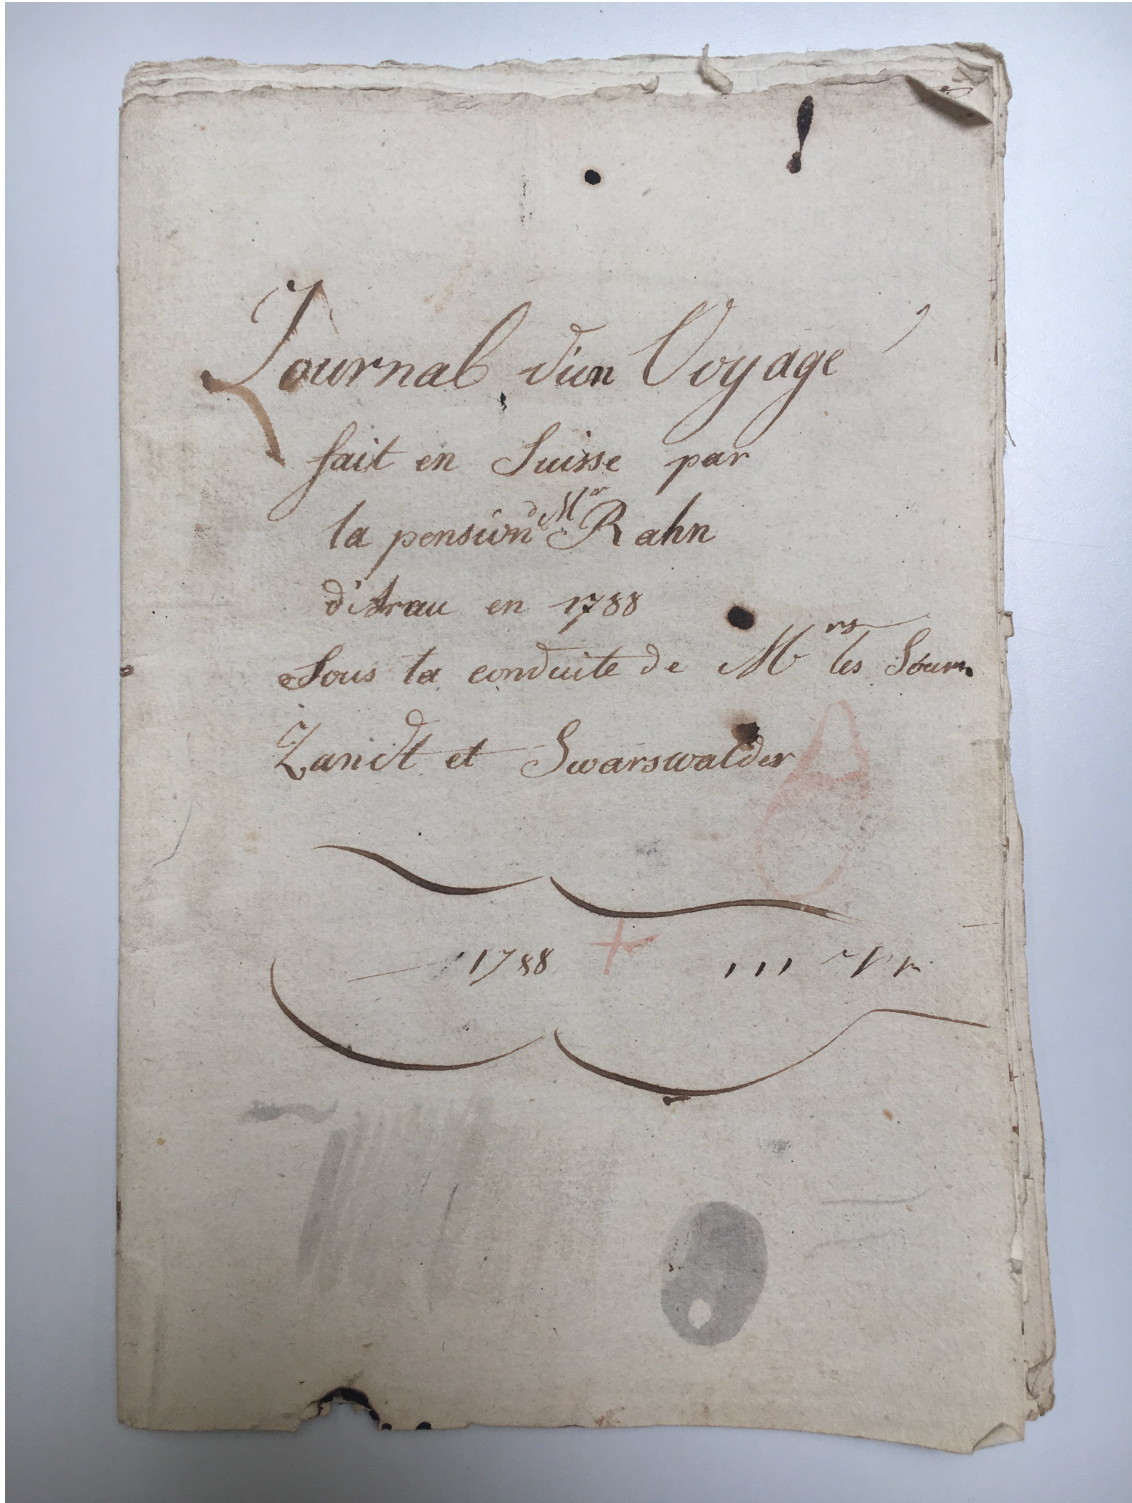 Journal d'un Voyage
fait en Suisse par
la pension de Mr Rahn
d'Arau en 1788
Sous la conduite de Mrs les
Zandt et Swarswalder
1788